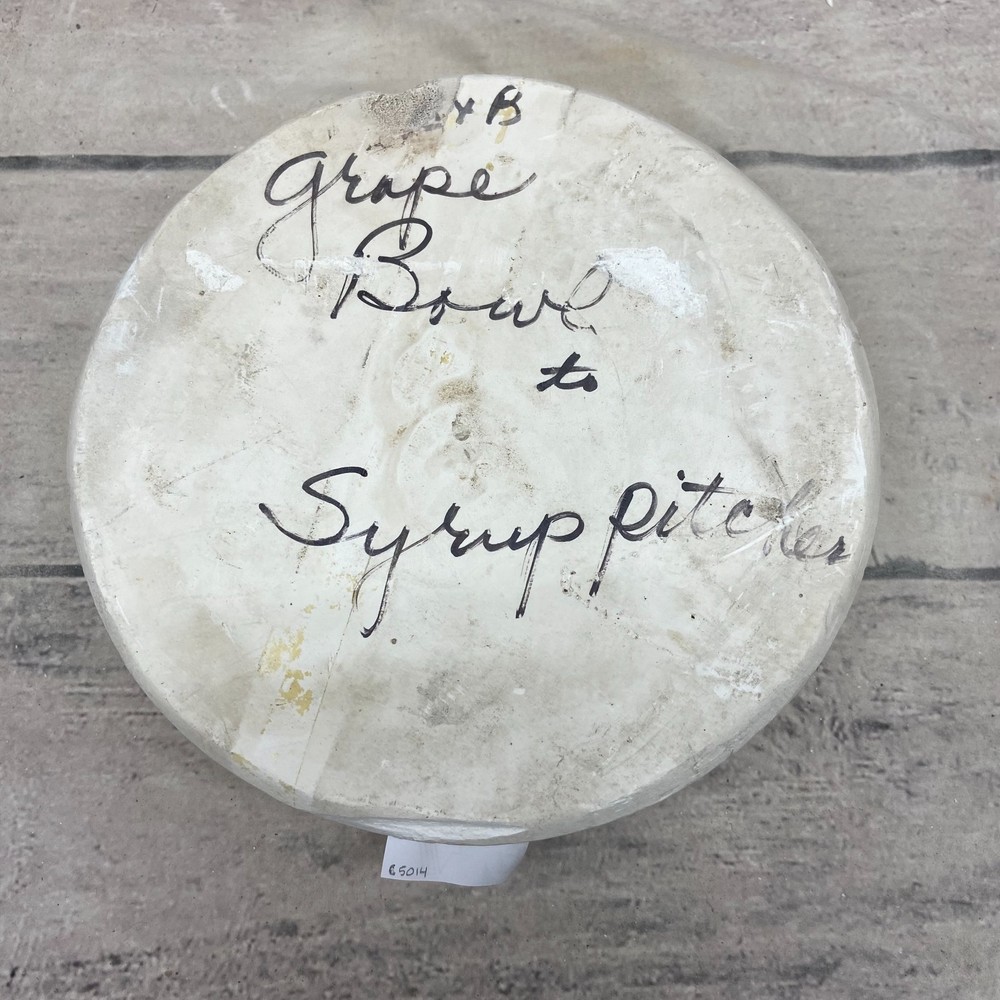 + B
Grape
Bowl
to
Syrup Pitcher
C5014